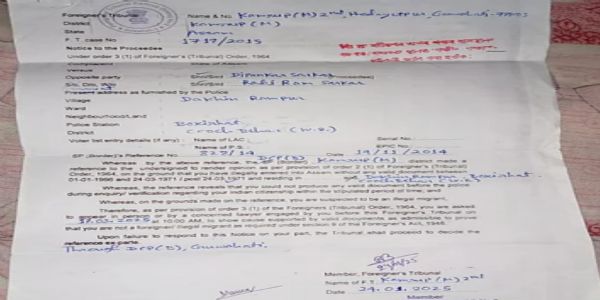 Foreigner's Tribunal Name & No. Kamrup (M) 2nd, Hedayetpur, Guwahati-
District Kamrup (M)
State Assam
F. T. case No 1717/2015
Notice to the Proceedee
Under order 3 (1) of Foreigner's (Tribunal) Order, 1964
Versus
Opposite party Shri/Smt Dipankar Sarkar (Proceedee)
S/o, D/o, W/o Shri/Smt Ram Sarkar
Present address as furnished by the Police
Village Dakhin Rampur
Ward
Neighbourhood/Land
Police Station Boxirhat
District Cooch Behar (W.B.)
Voter list entry details (if any) : Name of LAC Serial No
Name of P.S. EPIC No
SP (Border)'s Reference No 229/14 Date 19/11/2014
Whereas by the above reference, the DCP(B) Kamrup (M) district made a
reference to the undersigned to render opinion as per provision of order 2 (1) of Foreigners (Tribunal)
Order, 1964, on the ground that you have illegally entered into Assam without any valid document between
01-01-1966 and 24-03-1971 / post 24-03-1971 and residing in Dakhin Rampur, Boxirhat.
Whereas, the reference reveals that you could not produce any valid document before the police
during enquiry/ verification regarding your Indian citizenship within the stipulated period of time; and
Whereas, on the grounds made on the reference, you are suspected to be an illegal migrant.
Therefore, as per provision of order 3 (1) of the Foreigners (Tribunal) Order, 1964, you are asked
to appear in person or by a concerned lawyer engaged by you before this Foreigners Tribunal on
at 10:00 AM, to show cause supported by valid documents as admissible to prove
that you are not a foreigner/ illegal migrant as required under section 9 of the Foreigner's Act, 1946.
Upon failure to respond to this Notice on your part, the Tribunal shall proceed to decide the
reference ex parte.
Through DCP(B), Guwahati.
Member, Foreigner's Tribunal
Name of F.T. Kamrup (M) 2nd
Date 24.01.2025
Member